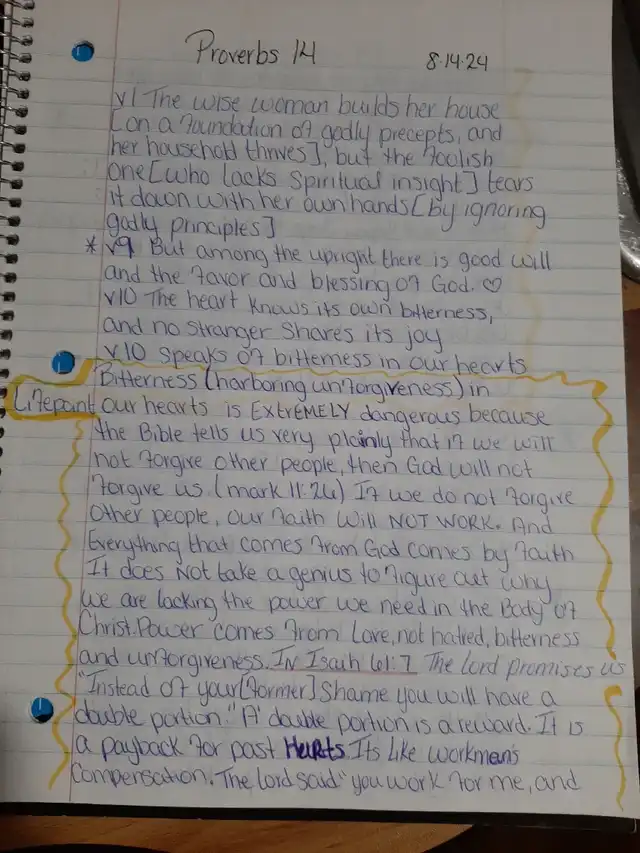 Proverbs 14
8.14.24
v1 The wise woman builds her house
[on a foundation of godly precepts, and
her household thrives], but the foolish
one [who lacks spiritual insight] tears
it down with her own hands [by ignoring
godly principles]
* v9 But among the upright there is good will
and the favor and blessing of God. ♡
v10 The heart knows its own bitterness,
and no stranger shares its joy
v10 speaks of bitterness in our hearts
Bitterness (harboring unforgiveness) in
Lifepoint our hearts is EXTREMELY dangerous because
the Bible tells us very plainly that if we will
not forgive other people, then God will not
forgive us. (mark 11:26) If we do not forgive
other people, our faith will NOT WORK. And
Everything that comes from God comes by faith
It does Not take a genius to figure out why
we are lacking the power we need in the Body of
Christ. Power comes from Love, not hatred, bitterness
and unforgiveness. IN Isaih 61:7 The Lord promises us
"Instead of your [former] shame you will have a
double portion." A' double portion is a reward. It is
a payback for past Hurts Its like workman's
compensation. The lord said "you work for me, and